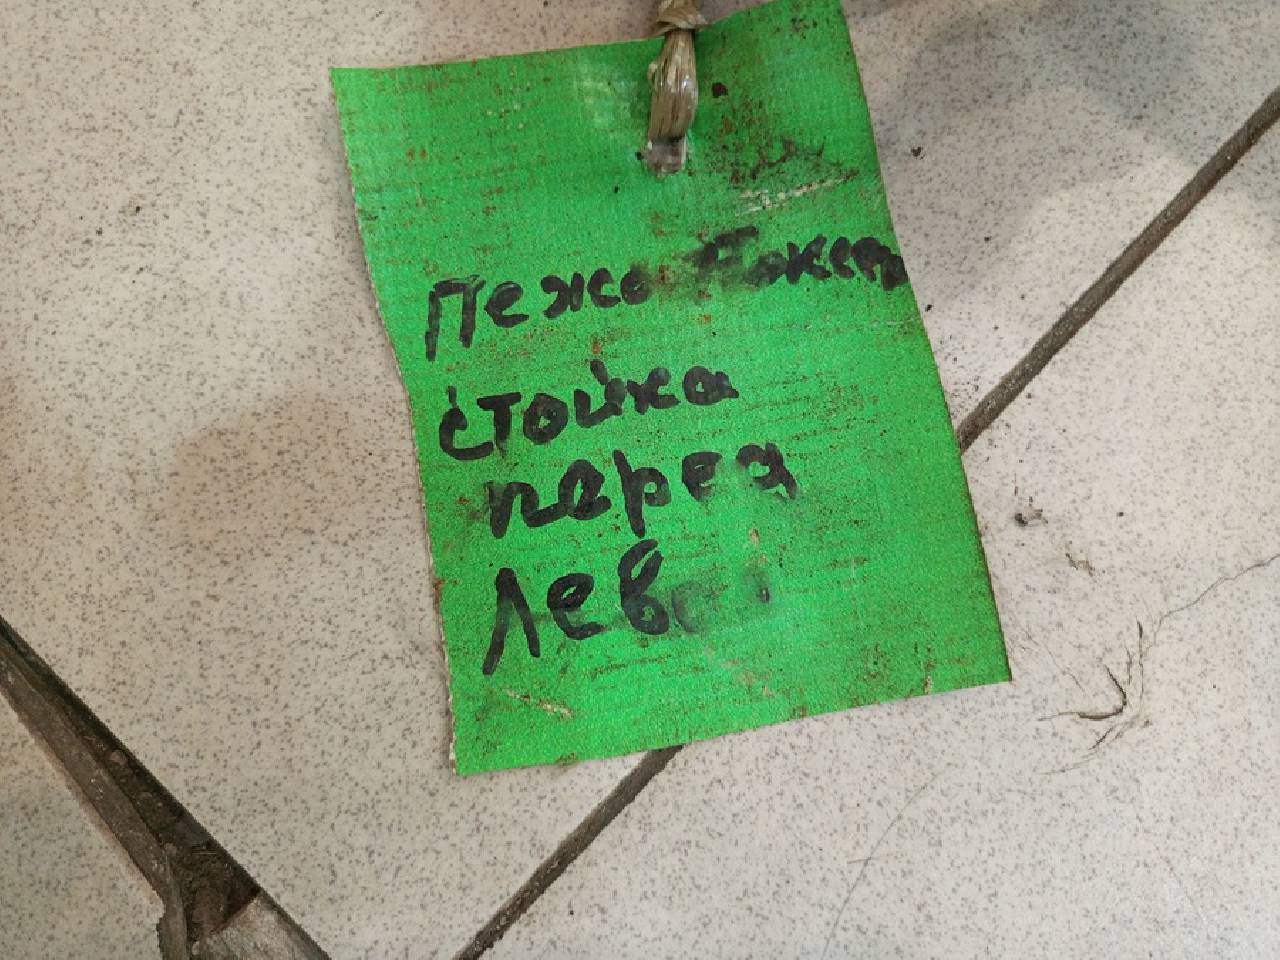 Пежо Боксер
стойка
перед
лев